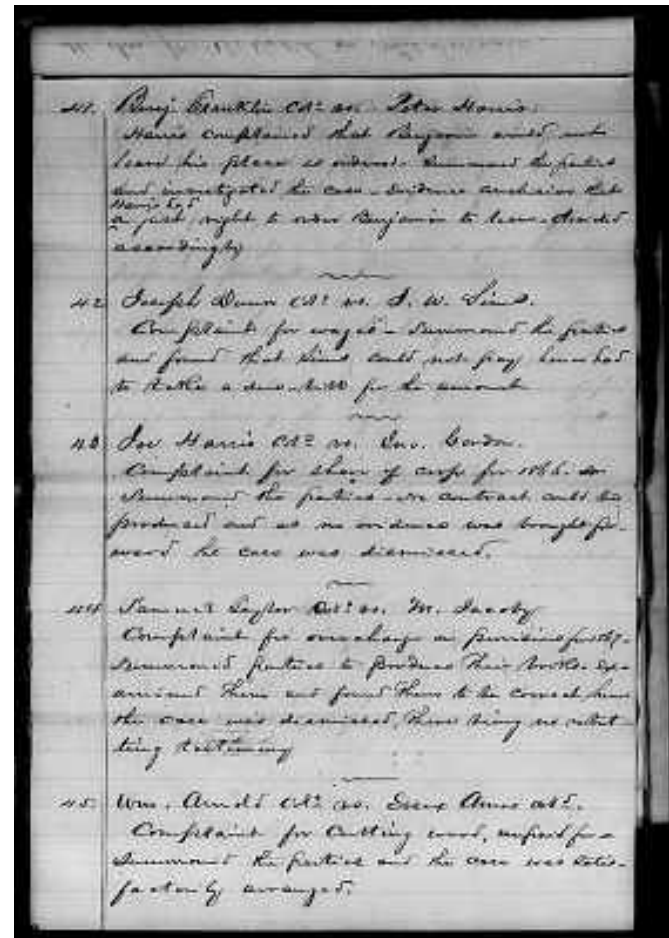 41. Benj. Franklin Col^d vs. Peter Harris.
Harris complained that Benjamin would not
leave his place as ordered - Summoned the parties
and investigated the case - Evidence conclusive that
Harris had
a just right to order Benjamin to leave - decided
accordingly
42 Joseph Dunn Col^d vs. J. W. Sims.
Complaint for wages - Summoned the parties
and found that Sims could not pay, hence had
to take a due-bill for the amount
43 Joe Harris Col^d vs. Jno. Gordon.
Complaint for share of crop for 1866.
Summoned the parties - no contract could be
produced and as no evidence was brought for-
ward the case was dismissed.
44 Samuel Taylor Col^d vs. M. Jacoby
Complaint for overcharge on provisions for 67 -
Summoned parties to produce their books - ex-
amined them and found them to be correct hence
the case was dismissed, there being no rebut-
ting testimony
45. Wm. Arnold Col^d vs. Essex Ames Col^d.
Complaint for Cutting wood, unpaid for -
Summoned the parties and the case was satis-
factorily arranged.